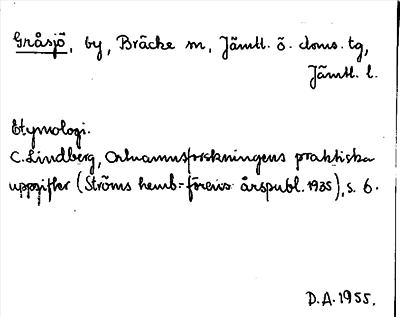 Gråsjö, by, Bräcke sn, Jämtl. ö. doms. tg,
Jämtl. l.
Etymologi.
C. Lindberg, Ortnamnsforskningens praktiska
uppgifter (Ströms hemb.-fören:s årspubl. 1935), s. 6.
D.A. 1955.